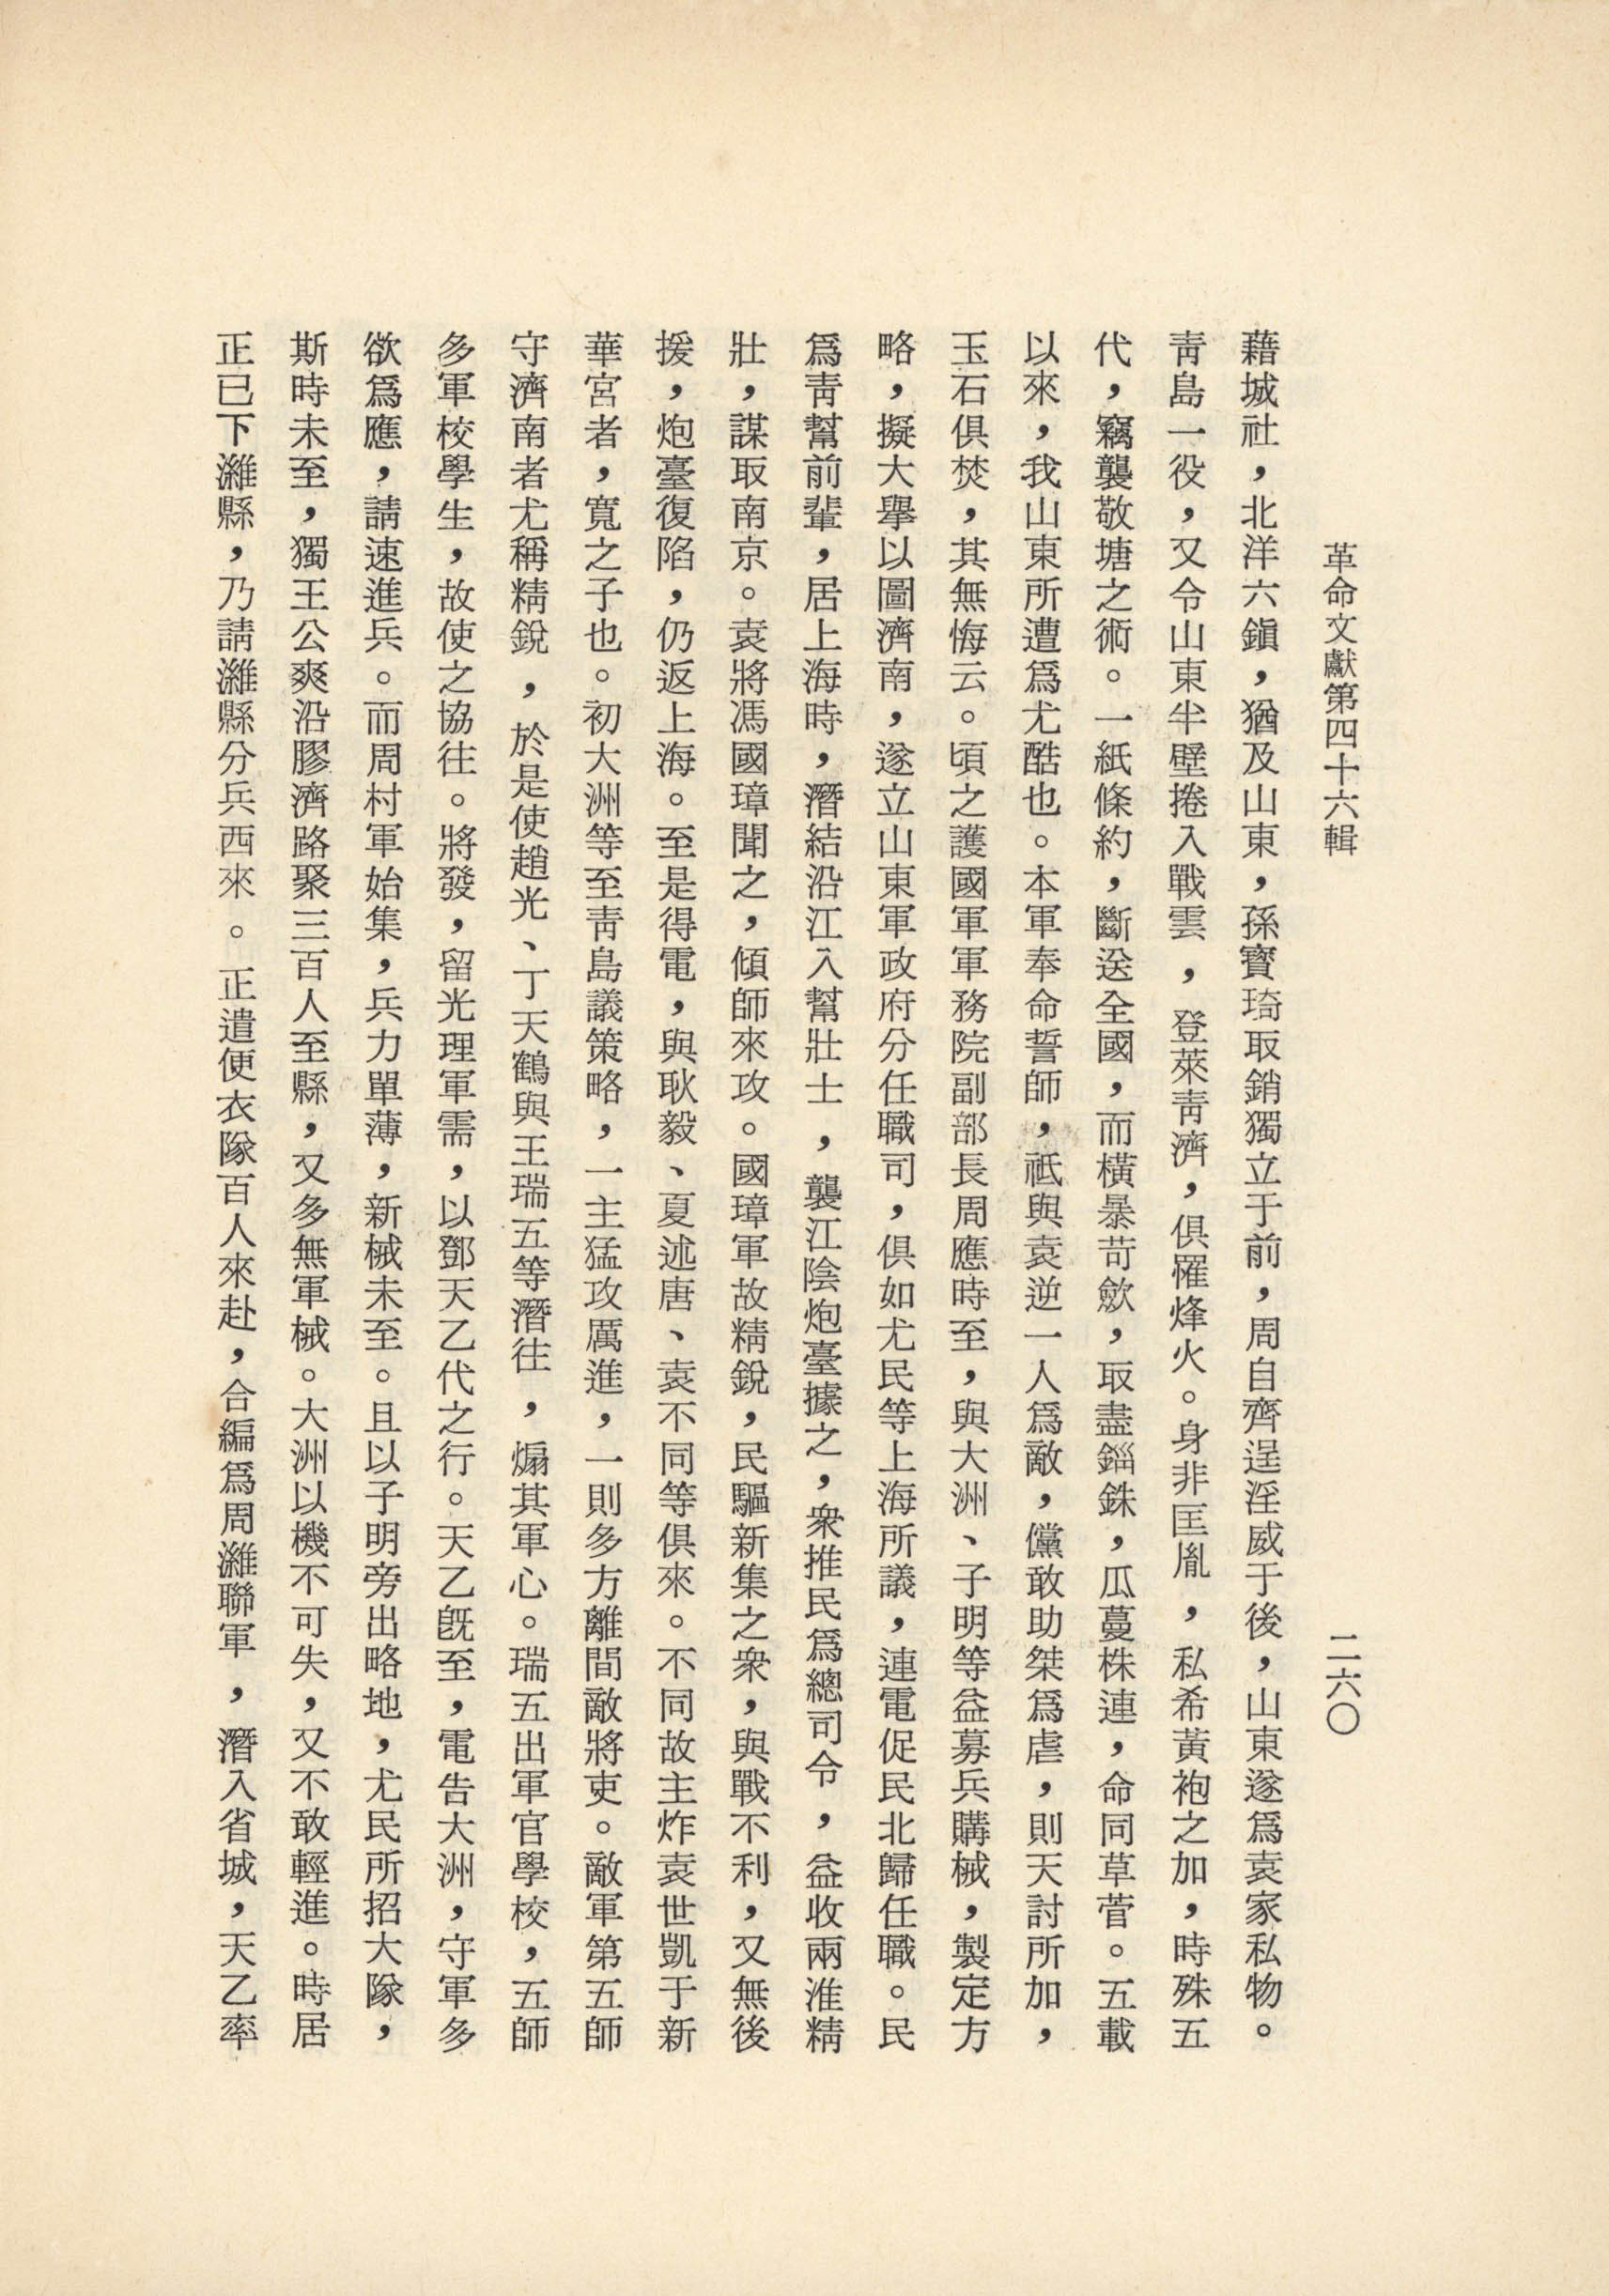 革命文獻第四十六輯
二六〇
藉城社，北洋六鎭，猶及山東，孫寶琦取銷獨立于前，周自齊逞淫威于後，山東遂爲袁家私物。
靑島一役，又令山東半壁捲入戰雲，登萊靑濟，俱罹烽火。身非匡胤，私希黃袍之加，時殊五
代，竊襲敬塘之術。一紙條約，斷送全國，而橫暴苛歛，取盡錙銖，瓜蔓株連，命同草菅。五載
以來，我山東所遭爲尤酷也。本軍奉命誓師，祇與袁逆一人爲敵，儻敢助桀爲虐，則天討所加，
玉石俱焚，其無悔云。頃之護國軍軍務院副部長周應時至，與大洲、子明等益募兵購械，製定方
略，擬大擧以圖濟南，遂立山東軍政府分任職司，俱如尤民等上海所議，連電促民北歸任職。民
爲靑幫前輩，居上海時，潛結沿江入幫壯士，襲江陰炮臺據之，衆推民爲總司令，益收兩淮精
壯，謀取南京。袁將馮國璋聞之，傾師來攻。國璋軍故精銳，民驅新集之衆，與戰不利，又無後
援，炮臺復陷，仍返上海。至是得電，與耿毅、夏述唐、袁不同等俱來。不同故主炸袁世凱于新
華宮者，寬之子也。初大洲等至靑島議策略，一主猛攻厲進，一則多方離間敵將吏。敵軍第五師
守濟南者尤稱精銳，於是使趙光、丁天鶴與王瑞五等潛往，煽其軍心。瑞五出軍官學校，五師
多軍校學生，故使之協往。將發，留光理軍需，以鄧天乙代之行。天乙旣至，電告大洲，守軍多
欲爲應，請速進兵。而周村軍始集，兵力單薄，新械未至。且以子明旁出略地，尤民所招大隊，
斯時未至，獨王公爽沿膠濟路聚三百人至縣，又多無軍械。大洲以機不可失，又不敢輕進。時居
正已下濰縣，乃請濰縣分兵西來。正遣便衣隊百人來赴，合編爲周濰聯軍，潛入省城，天乙率